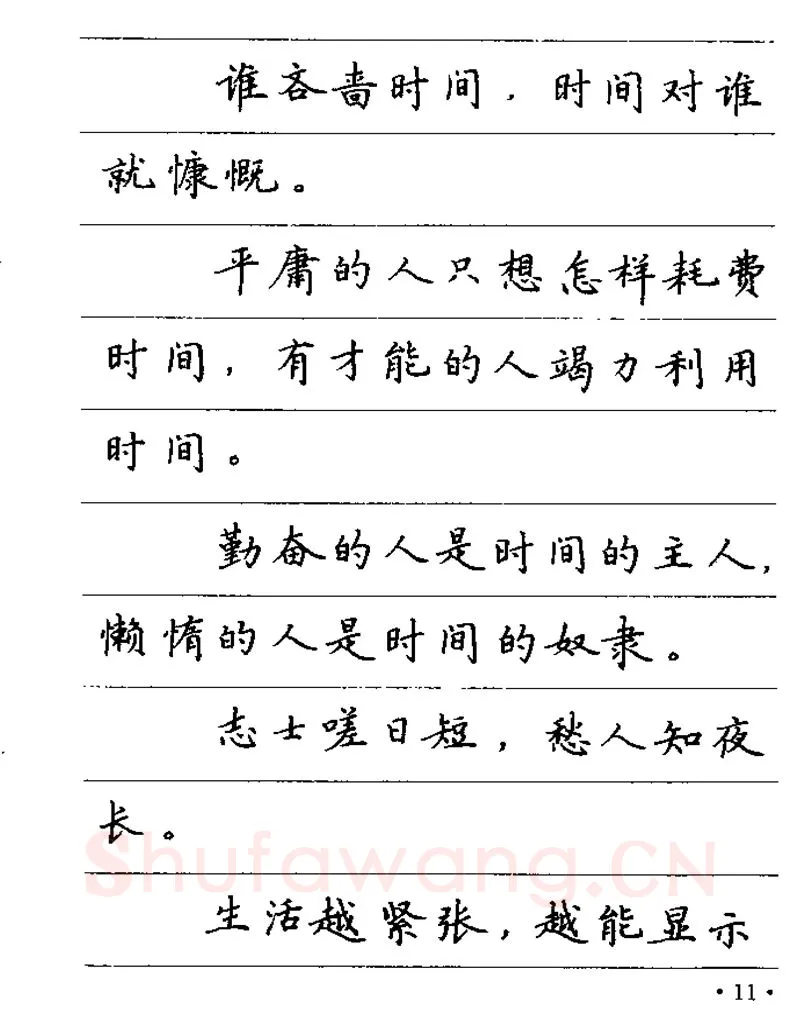 谁吝啬时间，时间对谁
就慷慨。
平庸的人只想怎样耗费
时间，有才能的人竭力利用
时间。
勤奋的人是时间的主人，
懒惰的人是时间的奴隶。
志士嗟日短，愁人知夜
长。
Shufawang.CN
生活越紧张，越能显示
·11·